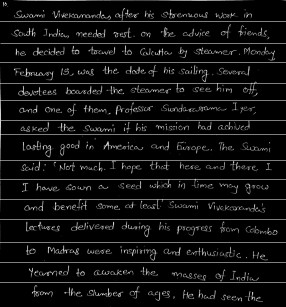 Swami Vivekananda, after his strenuous work in
South India, needed rest. on the advice of friends,
he decided to travel to Calcutta by steamer. Monday
February 15, was the date of his sailing. Several
devotees boarded the steamer to see him off,
and one of them, Professor Sundararama Iyer,
asked the Swami if his mission had achived
lasting good in America and Europe. The Swami
said: 'Not much. I hope that here and there I
I have sown a seed which in time may grow
and benefit some at least' Swami Vivekananda's
lectures delivered during his progress from Colombo
to Madras were inspiring and enthusiastic. He
Yearned to awaken the masses of India
from the slumber of ages. He had seen the